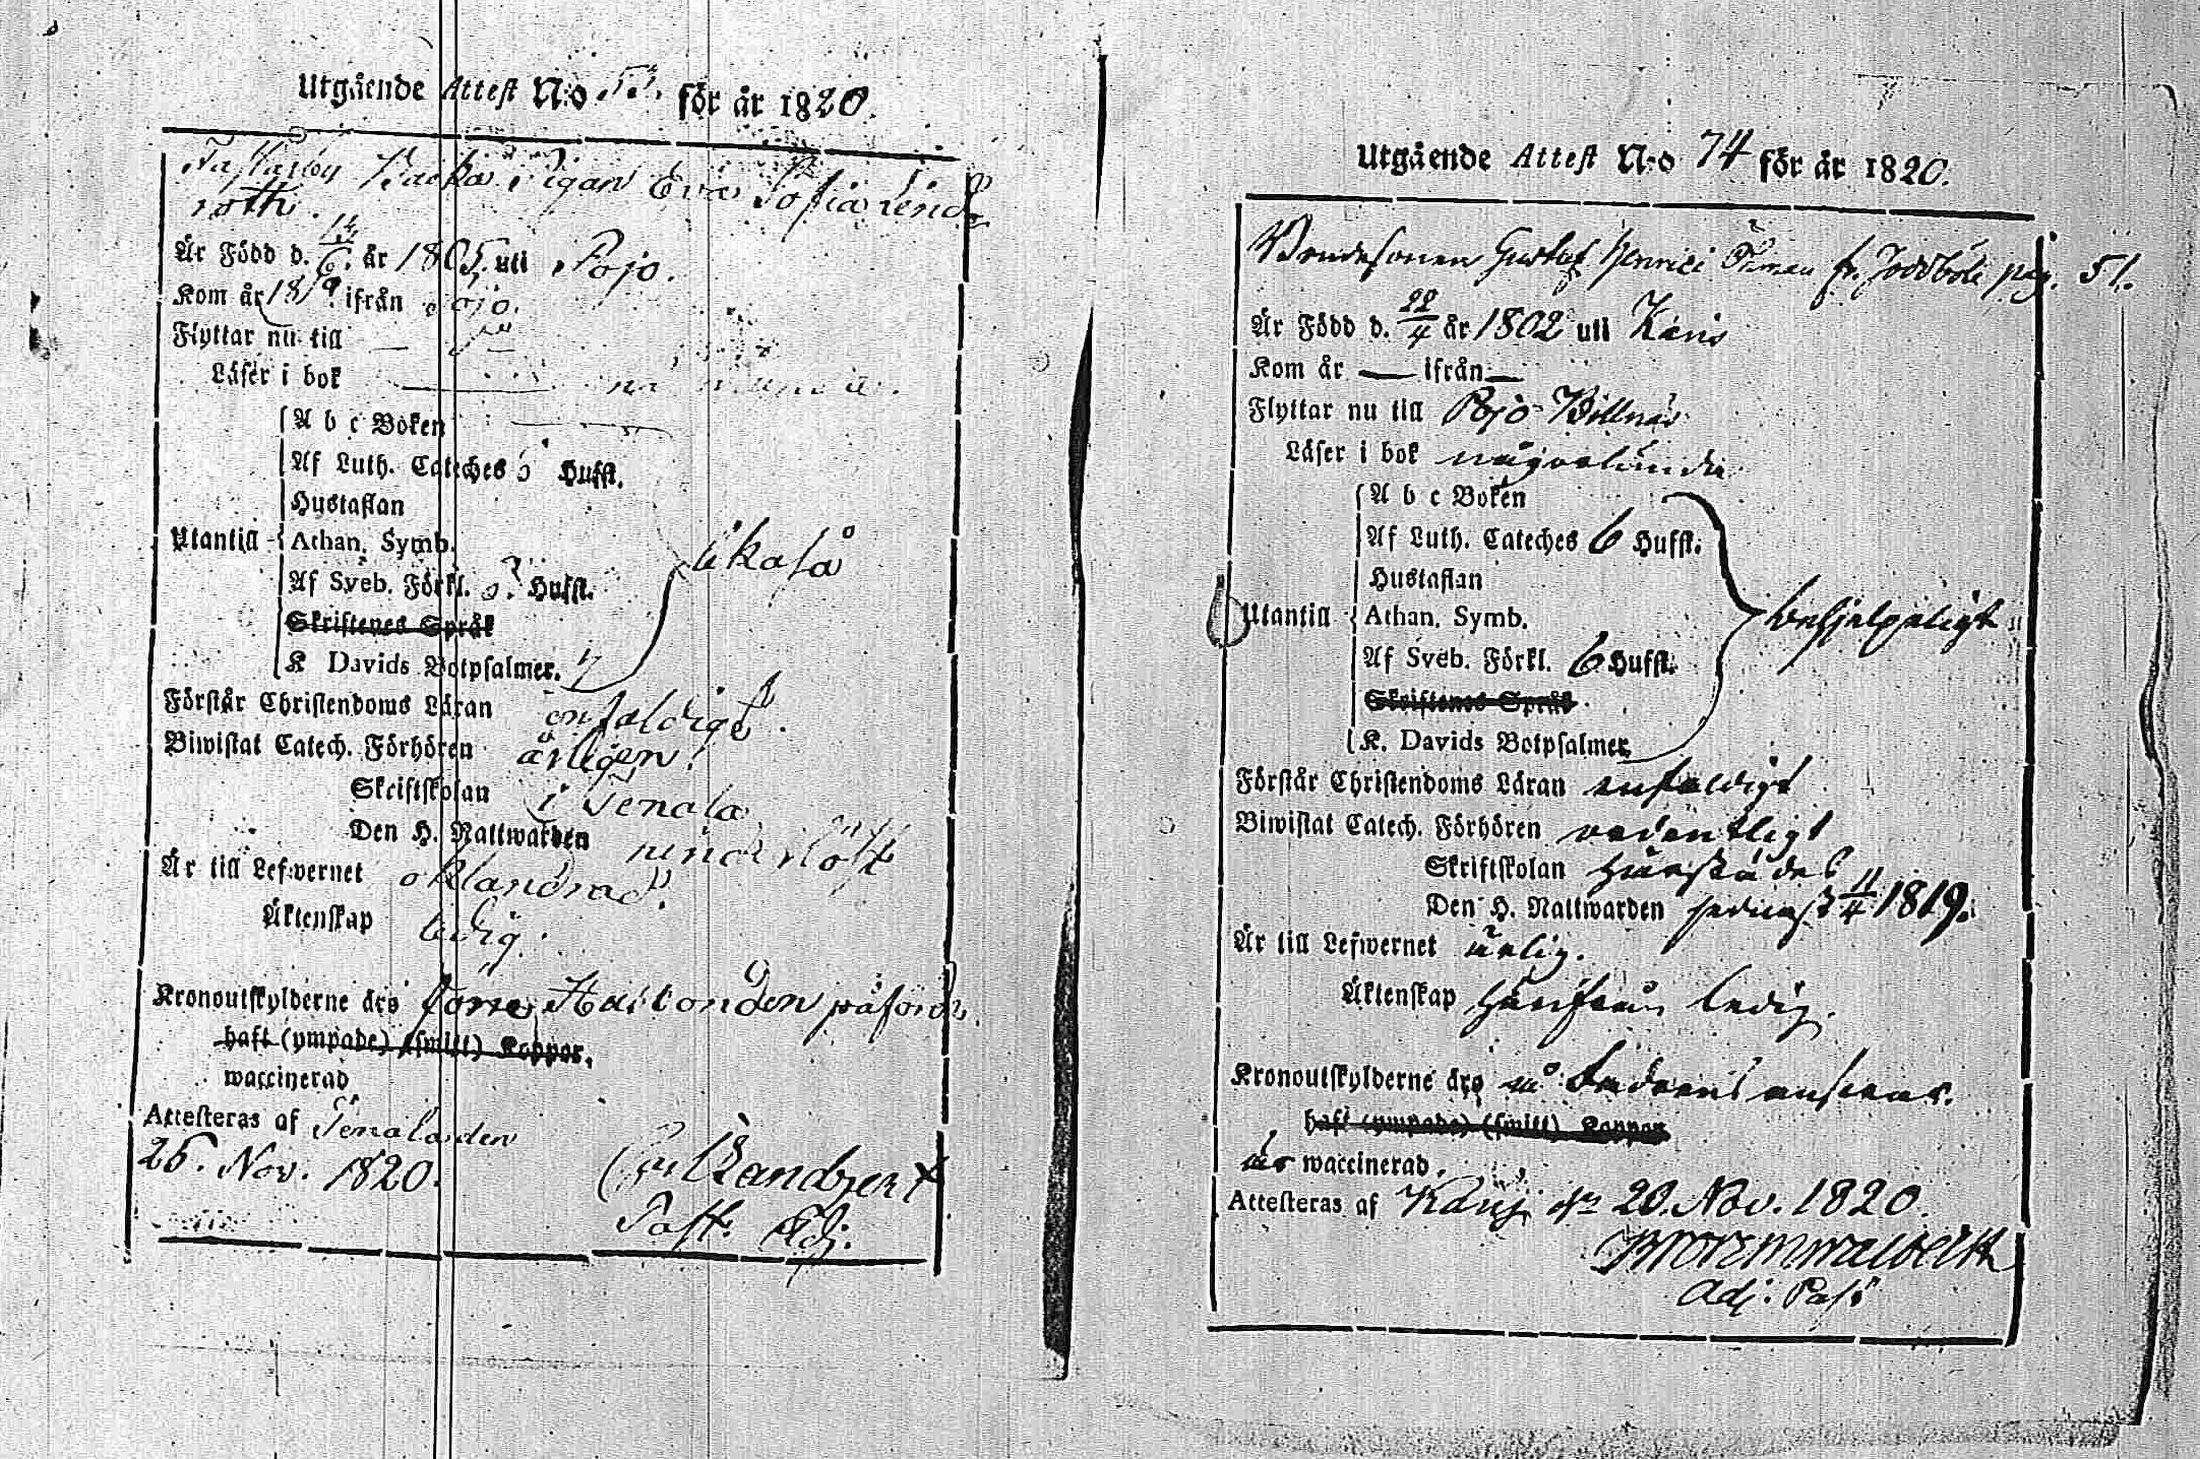 Utgående Attest N:o 53. för år 1820.
Backa Pigan Eva Sofia Lind
roth.
Är Född d. 13/6. år 1805. uti Pojo.
Kom år 1819. ifrån Pojo.
Flyttar nu till
Läser i bok
A b c Boken
Af Luth. Cateches 6 Hufst.
Hustaflan
Utantill Athan. Symb.
Af Sveb. Förkl. Hufst.
Skriftenes Språk
K Davids Botpsalmer. 7
likaså
Förstår Christendoms Läran enfaldigt.
Biwistat Catech. Förhören årligen.
Skriftskolan i Tenala
Den H. Nattwarden
Är till Lefwernet oklandrad.
Äktenskap ledig.
Kronoutskylderne äro förre Husbonden påförde.
haft (ympade) (smitt) Koppor.
waccinerad
Attesteras af Tenala den
26. Nov. 1820.
Past. Adj.
Utgående Attest N:o 74 för år 1820.
Bondesonen Gustaf Henrici fr. Joddböle pag. 51.
Är Född d. 22/4 år 1802 uti Karis
Kom år — ifrån —
Flyttar nu till Pojo Billnäs
Läser i bok någorlunda
A b c Boken
Af Luth. Cateches 6 Hufst.
Hustaflan
Utantill Athan. Symb.
Af Sveb. Förkl. 6 Hufst.
Skriftenes Språk
K. Davids Botpsalmer
behjelpeligt
Förstår Christendoms Läran enfaldigt
Biwistat Catech. Förhören ordentligt
Skriftskolan härstädes
Den H. Nattwarden sednast 11/4 1819.
Är till Lefwernet ärlig.
Äktenskap härifrån ledig.
Kronoutskylderne äro
haft (ympade) (smitt) Koppor
är waccinerad.
Attesteras af Karis den 20. Nov. 1820.
Adj. Past